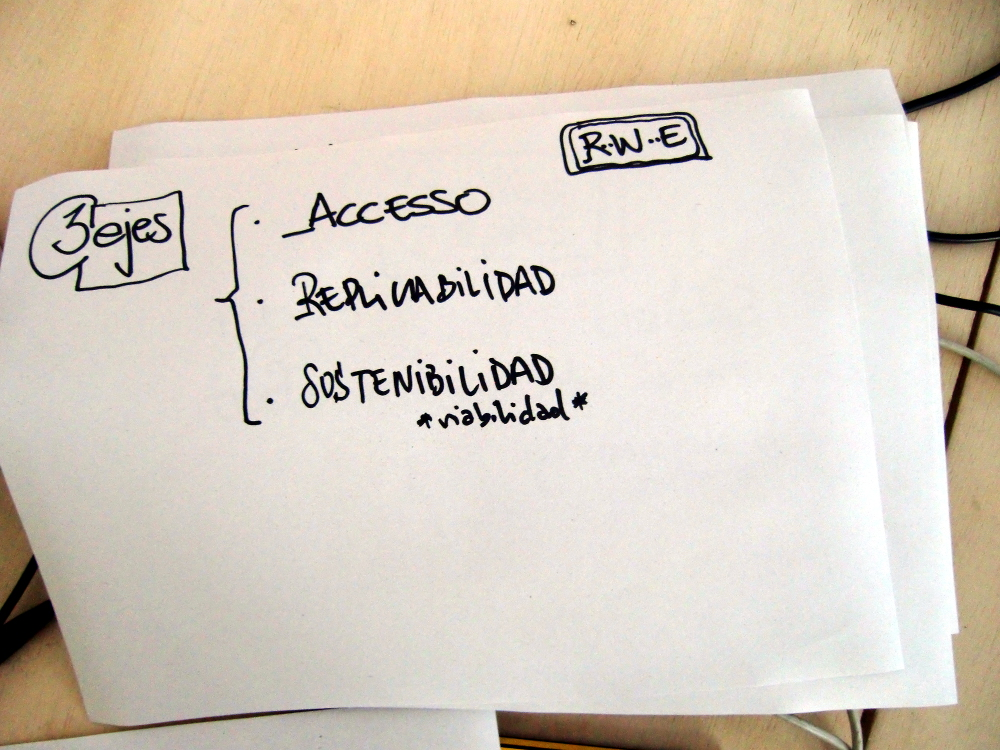 R..W..E
3 ejes
. ACCESSO
. REPLICABILIDAD
. SOSTENIBILIDAD
*viabilidad*